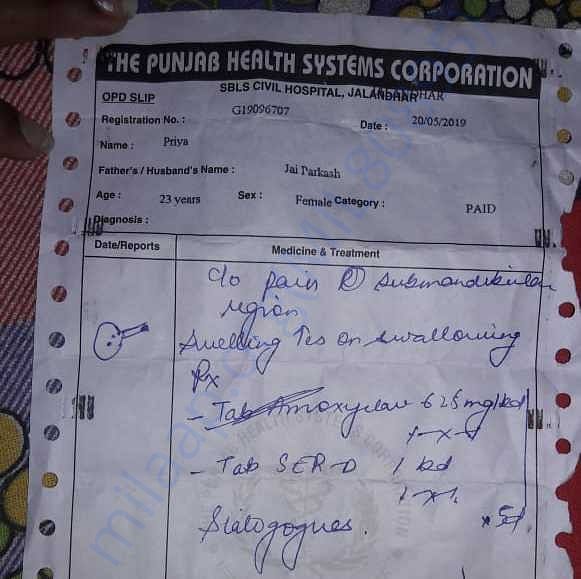 THE PUNJAB HEALTH SYSTEMS CORPORATION
SBLS CIVIL HOSPITAL, JALANDHAR
OPD SLIP
Registration No. : G19096707
Date : 20/05/2019
Name : Priya
Father's / Husband's Name : Jai Parkash
Age : 23 years Sex : Female Category : PAID
Diagnosis :
Date/Reports Medicine & Treatment
c/o pain (R) submandibular
region
Swelling ↑es on swallowing
Rx
- Tab Amoxyclav 625mg 1 bd
1-x-1
- Tab SER-D 1 bd
1-x-1
x 5d
Sialogogues.